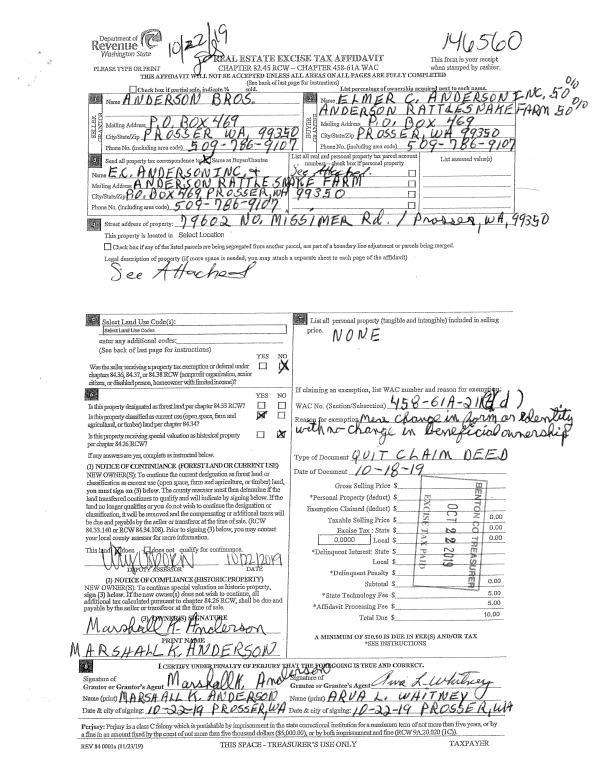 Department of
Revenue
Washington State
10/22/19
146560
REAL ESTATE EXCISE TAX AFFIDAVIT
This form is your receipt
when stamped by cashier.
PLEASE TYPE OR PRINT
CHAPTER 82.45 RCW – CHAPTER 458-61A WAC
THIS AFFIDAVIT WILL NOT BE ACCEPTED UNLESS ALL AREAS ON ALL PAGES ARE FULLY COMPLETED
(See back of last page for instructions)
Check box if partial sale, indicate % sold.
List percentage of ownership acquired next to each name.
Name ANDERSON BROS.
Name ELMER C. ANDERSON INC, 50%
ANDERSON RATTLESNAKE FARM 50%
SELLER
GRANTOR
Mailing Address P.O. BOX 469
City/State/Zip PROSSER WA, 99350
Phone No. (including area code) 509-786-9107
BUYER
GRANTEE
Mailing Address P.O. BOX 469
City/State/Zip PROSSER, WA, 99350
Phone No. (including area code) 509-786-9107
Send all property tax correspondence to: Same as Buyer/Grantee
List all real and personal property tax parcel account
numbers – check box if personal property
List assessed value(s)
Name E.C. ANDERSON INC. &
See Attached
Mailing Address ANDERSON RATTLESNAKE FARM
City/State/Zip P.O. BOX 469 PROSSER, WA 99350
Phone No. (including area code) 509-786-9107
4 Street address of property: 79602 NO. MISSIMER Rd. / Prosser, WA, 99350
This property is located in Select Location
Check box if any of the listed parcels are being segregated from another parcel, are part of a boundary line adjustment or parcels being merged.
Legal description of property (if more space is needed, you may attach a separate sheet to each page of the affidavit)
See Attached
5 Select Land Use Code(s):
Select Land Use Codes
enter any additional codes:
(See back of last page for instructions)
YES NO
Was the seller receiving a property tax exemption or deferral under
chapters 84.36, 84.37, or 84.38 RCW (nonprofit organization, senior
citizen, or disabled person, homeowner with limited income)?
6
YES NO
Is this property designated as forest land per chapter 84.33 RCW?
Is this property classified as current use (open space, farm and
agricultural, or timber) land per chapter 84.34?
Is this property receiving special valuation as historical property
per chapter 84.26 RCW?
If any answers are yes, complete as instructed below.
(1) NOTICE OF CONTINUANCE (FOREST LAND OR CURRENT USE)
NEW OWNER(S): To continue the current designation as forest land or
classification as current use (open space, farm and agriculture, or timber) land,
you must sign on (3) below. The county assessor must then determine if the
land transferred continues to qualify and will indicate by signing below. If the
land no longer qualifies or you do not wish to continue the designation or
classification, it will be removed and the compensating or additional taxes will
be due and payable by the seller or transferor at the time of sale. (RCW
84.33.140 or RCW 84.34.108). Prior to signing (3) below, you may contact
your local county assessor for more information.
This land does does not qualify for continuance.
10/22/2019
DEPUTY ASSESSOR DATE
(2) NOTICE OF COMPLIANCE (HISTORIC PROPERTY)
NEW OWNER(S): To continue special valuation as historic property,
sign (3) below. If the new owner(s) does not wish to continue, all
additional tax calculated pursuant to chapter 84.26 RCW, shall be due and
payable by the seller or transferor at the time of sale.
(3) OWNER(S) SIGNATURE
Marshall K. Anderson
PRINT NAME
MARSHALL K. ANDERSON
List all personal property (tangible and intangible) included in selling
price.
NONE
If claiming an exemption, list WAC number and reason for exemption:
WAC No. (Section/Subsection) 458-61A-211(2d)
Reason for exemption Mere change in form or Identity
with no change in beneficial ownership
Type of Document QUIT CLAIM DEED
Date of Document 10-18-19
Gross Selling Price $
*Personal Property (deduct) $
Exemption Claimed (deduct) $
Taxable Selling Price $ 0.00
Excise Tax : State $ 0.00
0.0000 Local $ 0.00
*Delinquent Interest: State $
Local $
*Delinquent Penalty $
Subtotal $ 0.00
*State Technology Fee $ 5.00
*Affidavit Processing Fee $ 5.00
Total Due $ 10.00
BENTON CO TREASURER
OCT 22 2019
EXCISE TAX PAID
A MINIMUM OF $10.00 IS DUE IN FEE(S) AND/OR TAX
*SEE INSTRUCTIONS
8 I CERTIFY UNDER PENALTY OF PERJURY THAT THE FOREGOING IS TRUE AND CORRECT.
Signature of
Grantor or Grantor's Agent Marshall K. Anderson
Name (print) MARSHALL K. ANDERSON
Date & city of signing: 10-22-19 PROSSER, WA
Signature of
Grantee or Grantee's Agent Arva L. Whitney
Name (print) ARVA L. WHITNEY
Date & city of signing: 10-22-19 PROSSER, WA
Perjury: Perjury is a class C felony which is punishable by imprisonment in the state correctional institution for a maximum term of not more than five years, or by
a fine in an amount fixed by the court of not more than five thousand dollars ($5,000.00), or by both imprisonment and fine (RCW 9A.20.020 (1C)).
REV 84 0001a (01/23/19)
THIS SPACE - TREASURER'S USE ONLY
TAXPAYER